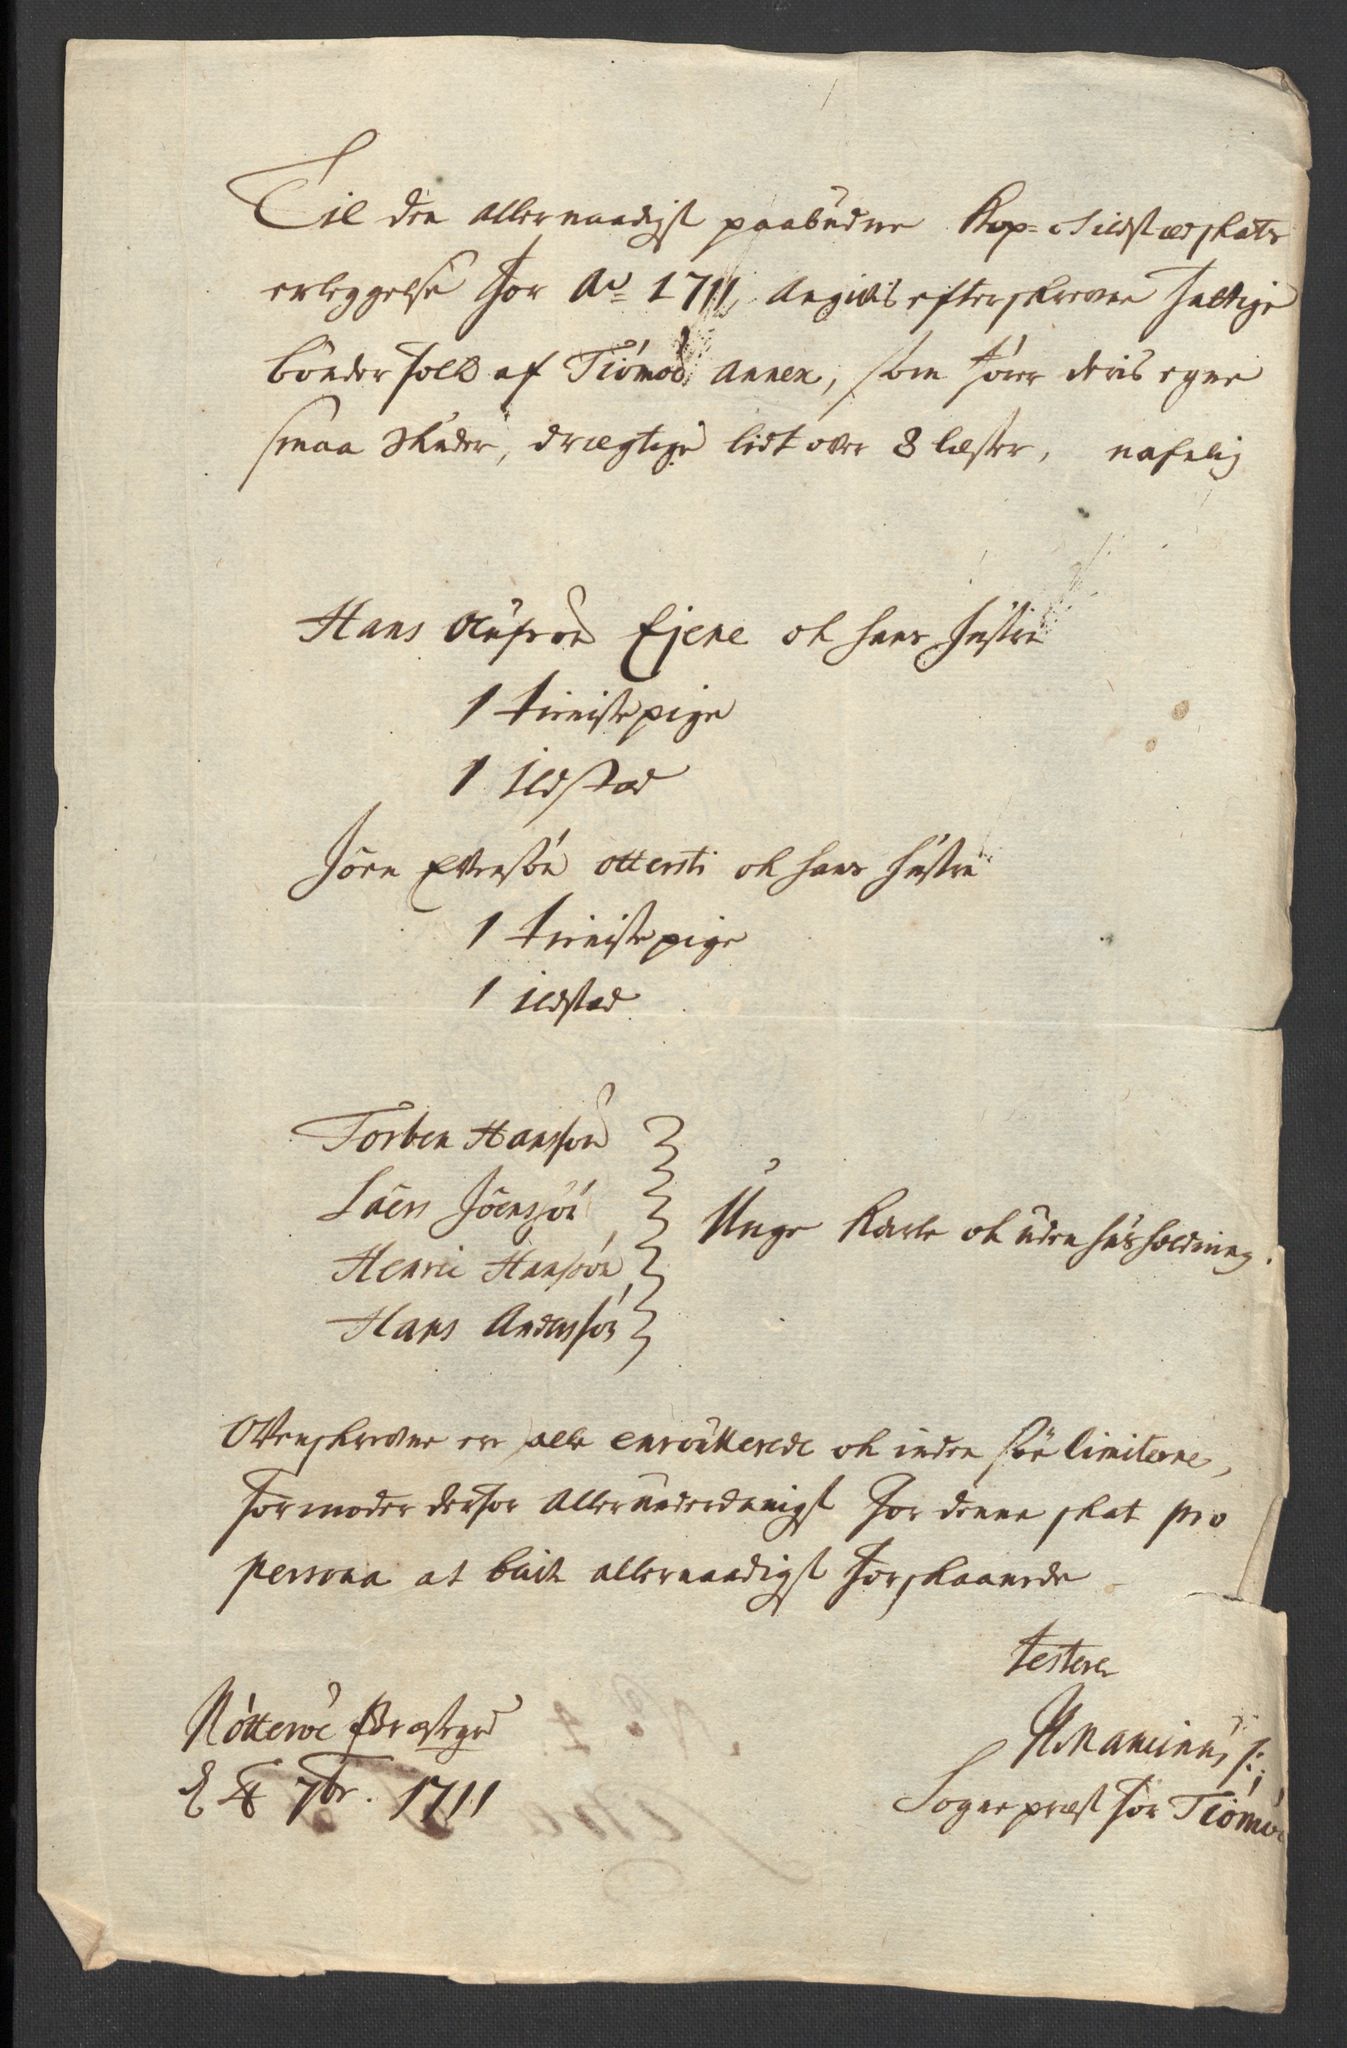 Til den allernaadigst paabudne Kop- & Ildstædskatts
erleggelse for Ao 1711 Angives efterskrevne fattige
bönder folk af Tiömöe Annex, som förer deris egne
smaa Skuder, drægtige lidt over 8 læster, nafnlig
Hans Olufsön Ejene ok hans hustru
1 tieniste pige
1 ildstad
Jörn Evensön ottersti ok hans hustru
1 tieniste pige
1 ildstad
Torben Hanssön
Lærs Jörenssön
Henric Hanssön
Hans Anderssön
Unge Karle ok uden huusholdning.
Ovenskrevne ere alle enroullerede ok inden söe limiterne,
formoder derfor allerunderdanigst for denne skat pro
persona at blive allernaadigst forskaanede
testerer
Nötteröe Præstegrd
d. 8 7br. 1711
Sognepræst for Tiömöe